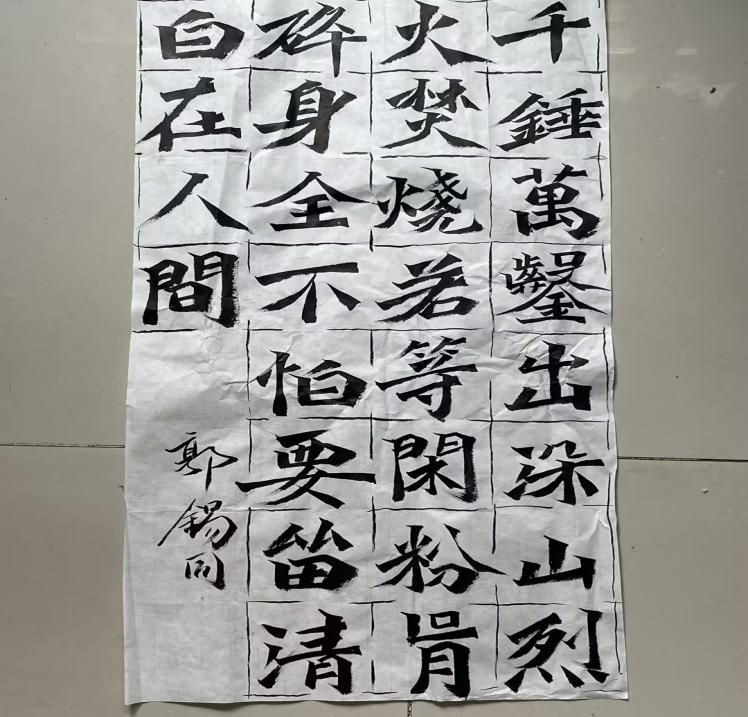 千錘萬鑿出深山烈
火焚燒若等閑粉骨
碎身全不怕要留清
白在人間
郭錫同